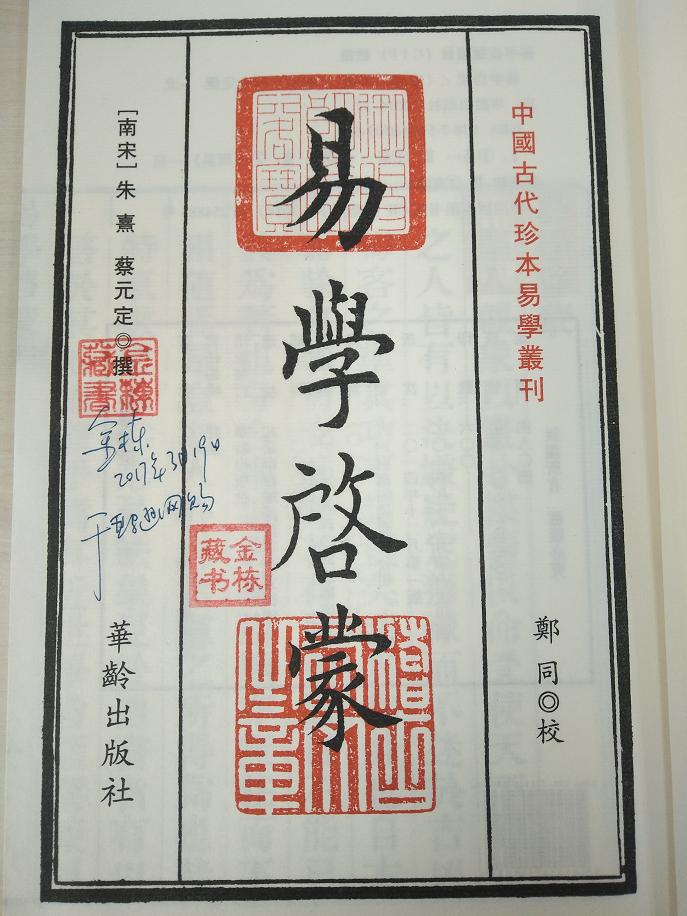 中國古代珍本易學叢刊
鄭同◎校
易學啓蒙
[南宋]朱熹 蔡元定◎撰
金栋藏書
金栋
2017年3月19日
金栋藏书
華齡出版社